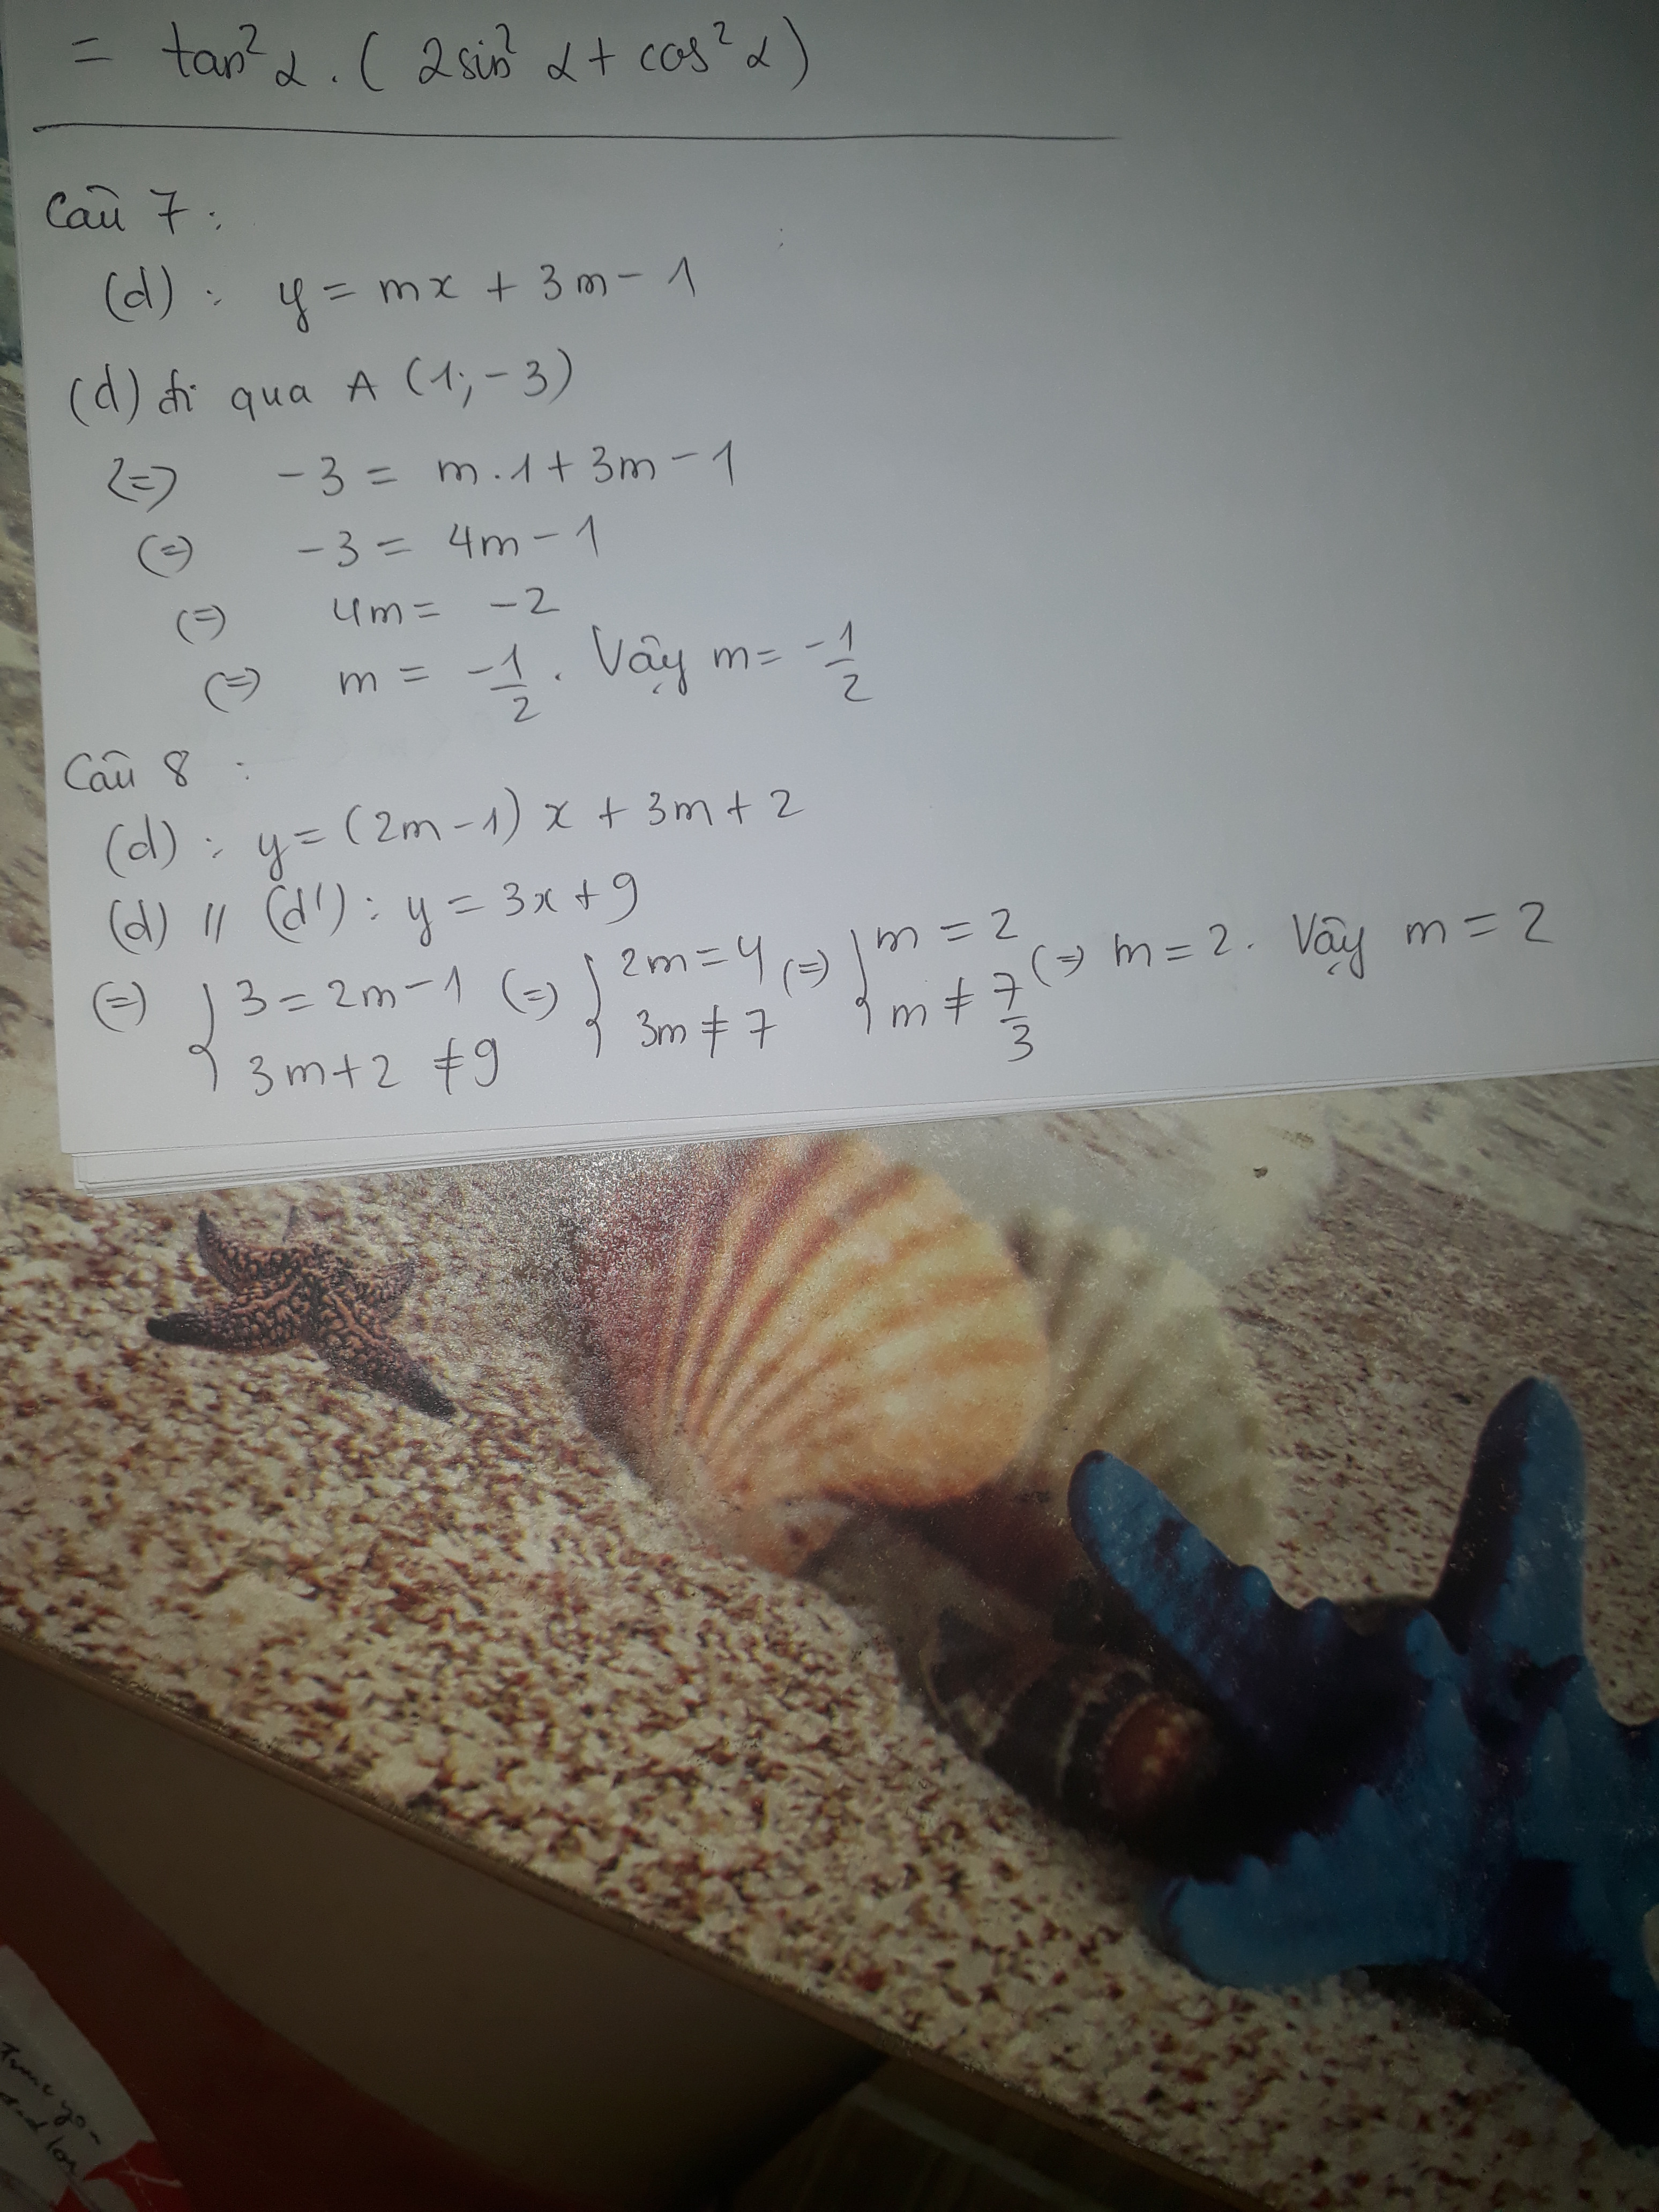 = tan² α . ( 2sin² α + cos² α )
Câu 7 :
(d) : y = mx + 3m - 1
(d) đi qua A (1; -3)
(=) -3 = m . 1 + 3m - 1
(=) -3 = 4m - 1
(=) 4m = -2
(=) m = -1/2 . Vậy m = -1/2
Câu 8 :
(d) : y = (2m - 1) x + 3m + 2
(d) // (d') : y = 3x + 9
(=) { 3 = 2m - 1 (=) { 2m = 4 (=) { m = 2 (=) m = 2 . Vậy m = 2
3m + 2 ≠ 9 3m ≠ 7 m ≠ 7/3